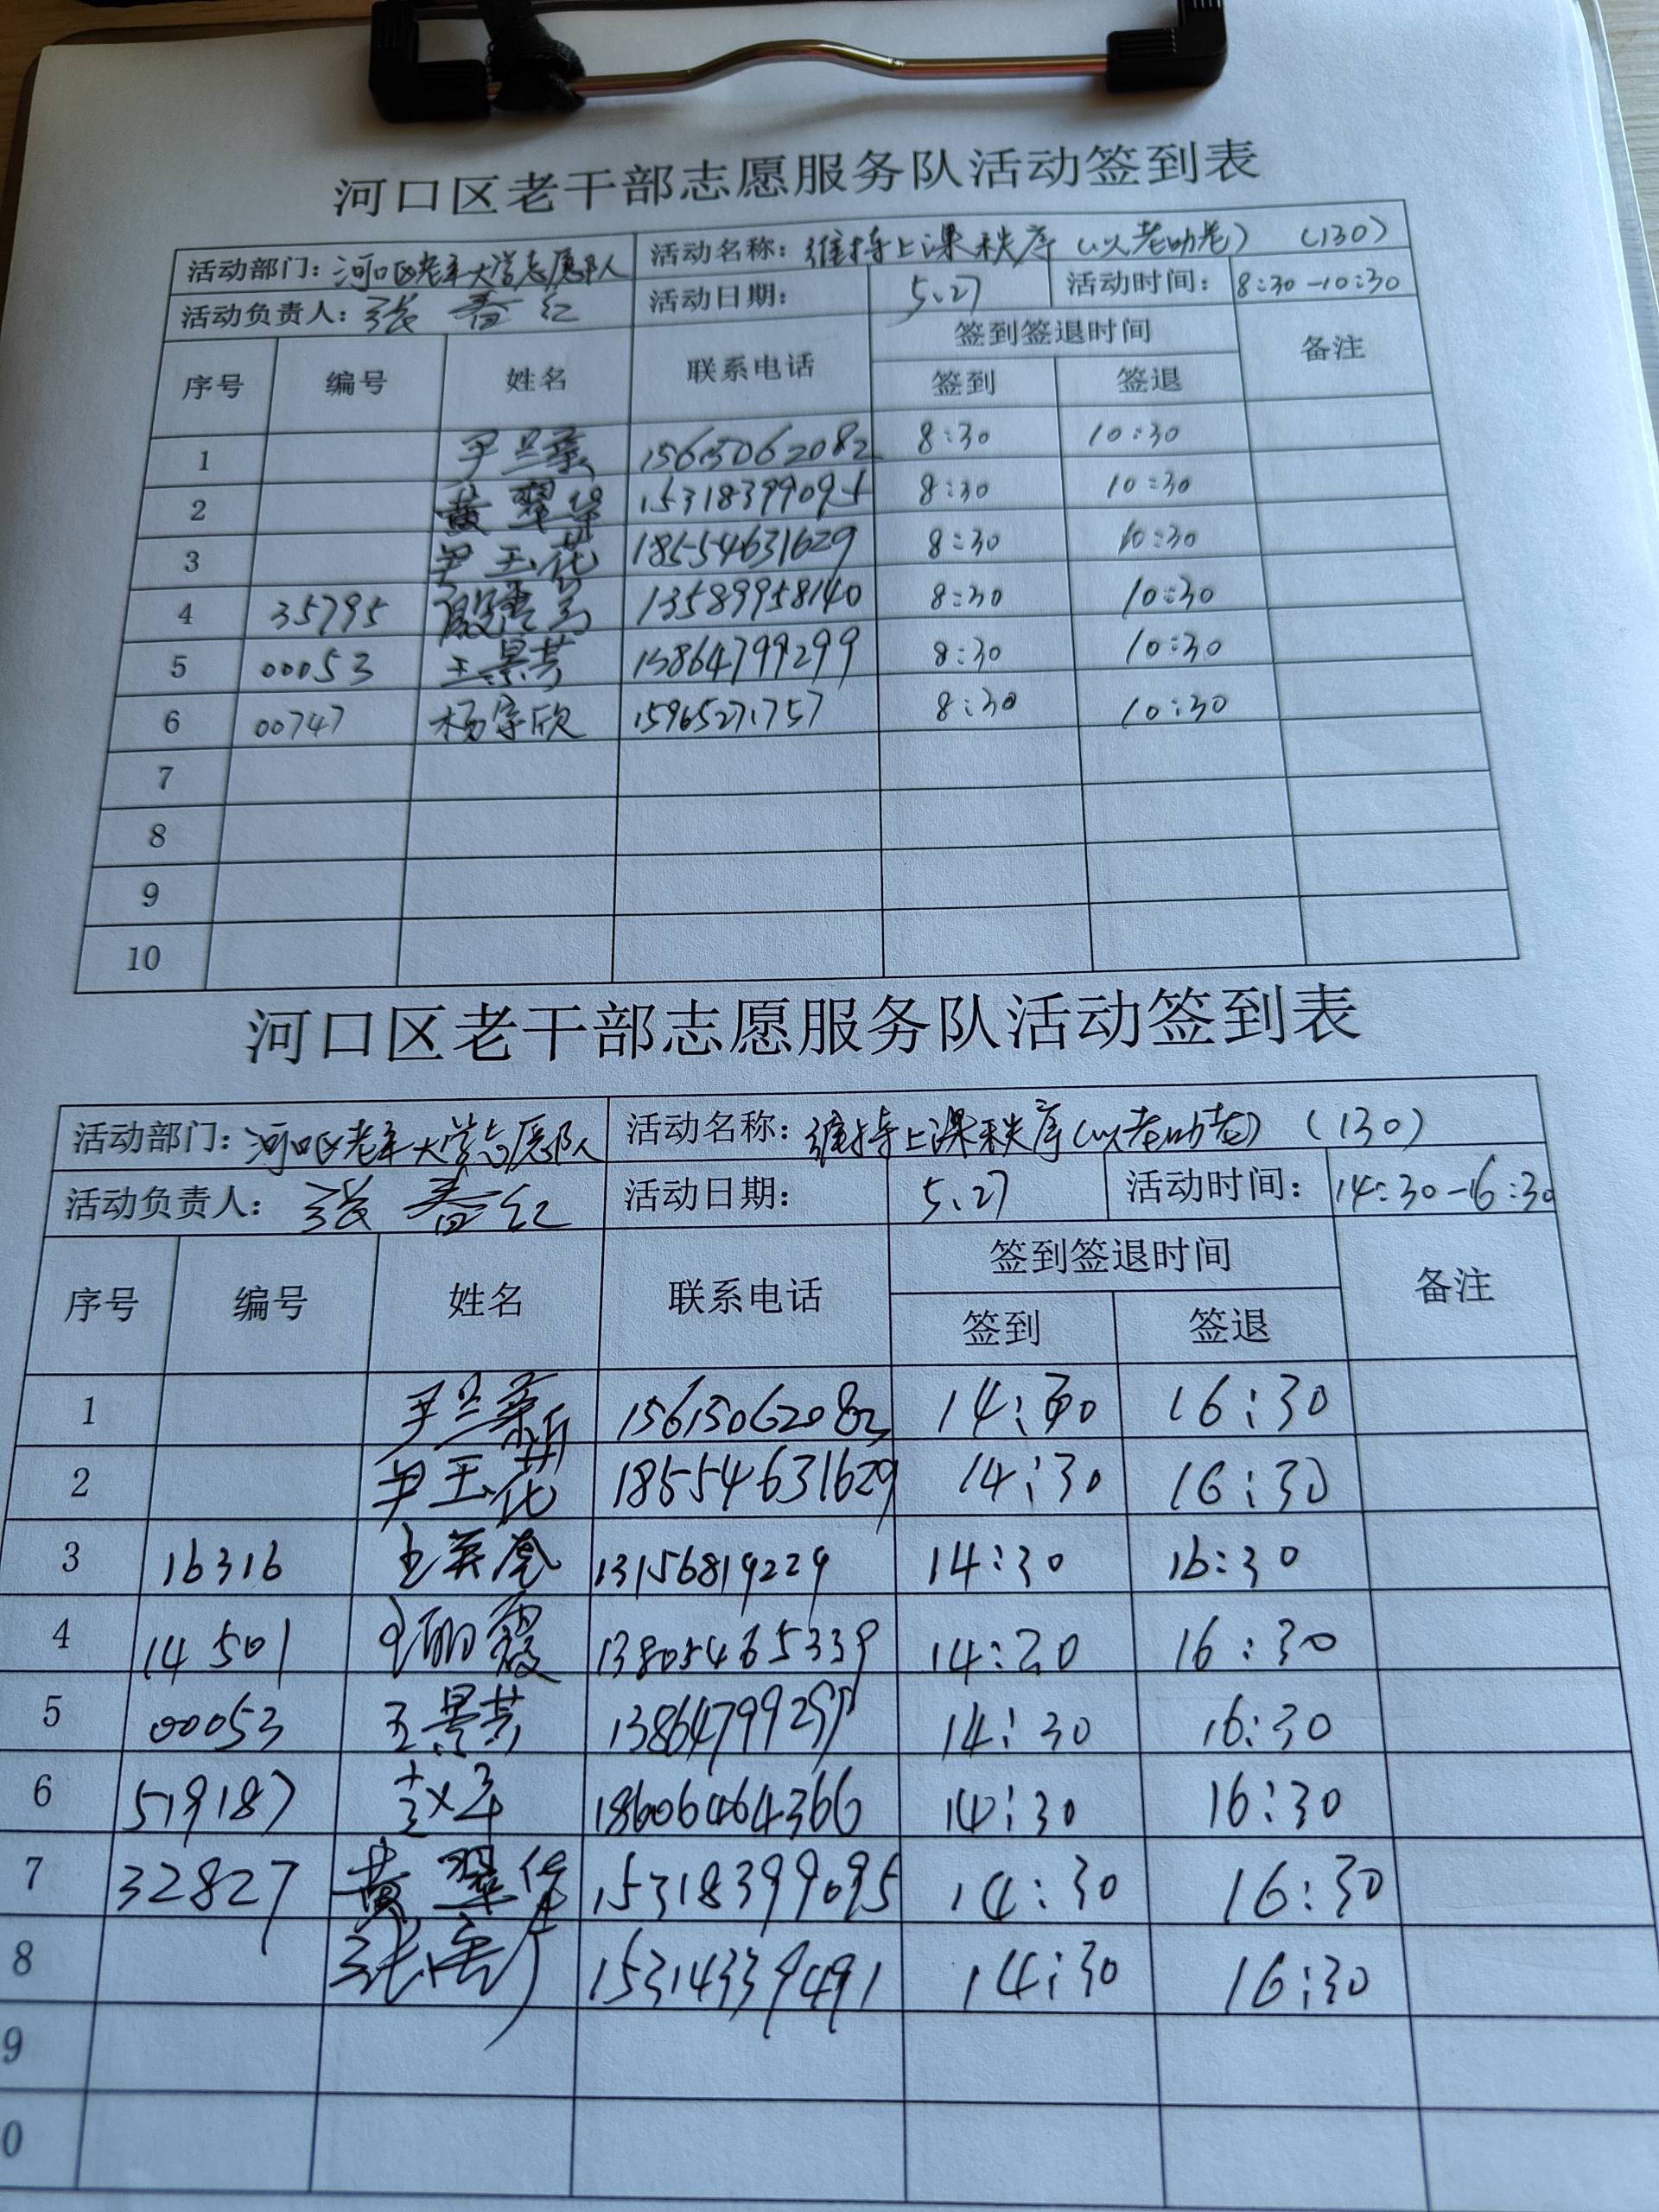 河口区老干部志愿服务队活动签到表
活动部门：河口区老年大学志愿队 活动名称：维持上课秩序（以老助老）（130）
活动负责人：张春红 活动日期： 5.27 活动时间： 8:30-10:30
序号 编号 姓名 联系电话 签到签退时间 备注
签到 签退
1 尹兰 15615062082 8:30 10:30
2 黄翠华 15318399095 8:30 10:30
3 尹玉花 18554631629 8:30 10:30
4 35795 13589958140 8:30 10:30
5 00053 王景芳 13864799299 8:30 10:30
6 00747 杨宗欣 15965271757 8:30 10:30
7
8
9
10
河口区老干部志愿服务队活动签到表
活动部门：河口区老年大学志愿队 活动名称：维持上课秩序（以老助老）（130）
活动负责人：张春红 活动日期： 5.27 活动时间： 14:30-16:30
序号 编号 姓名 联系电话 签到签退时间 备注
签到 签退
1 尹兰 15615062082 14:30 16:30
2 尹玉花 18554631629 14:30 16:30
3 16316 王英 13156819229 14:30 16:30
4 14501 王丽霞 13805465339 14:20 16:30
5 00053 王景芳 13864799299 14:30 16:30
6 519187 18606464366 14:30 16:30
7 32827 黄翠华 15318399095 14:30 16:30
8 张 15314339491 14:30 16:30
9
0